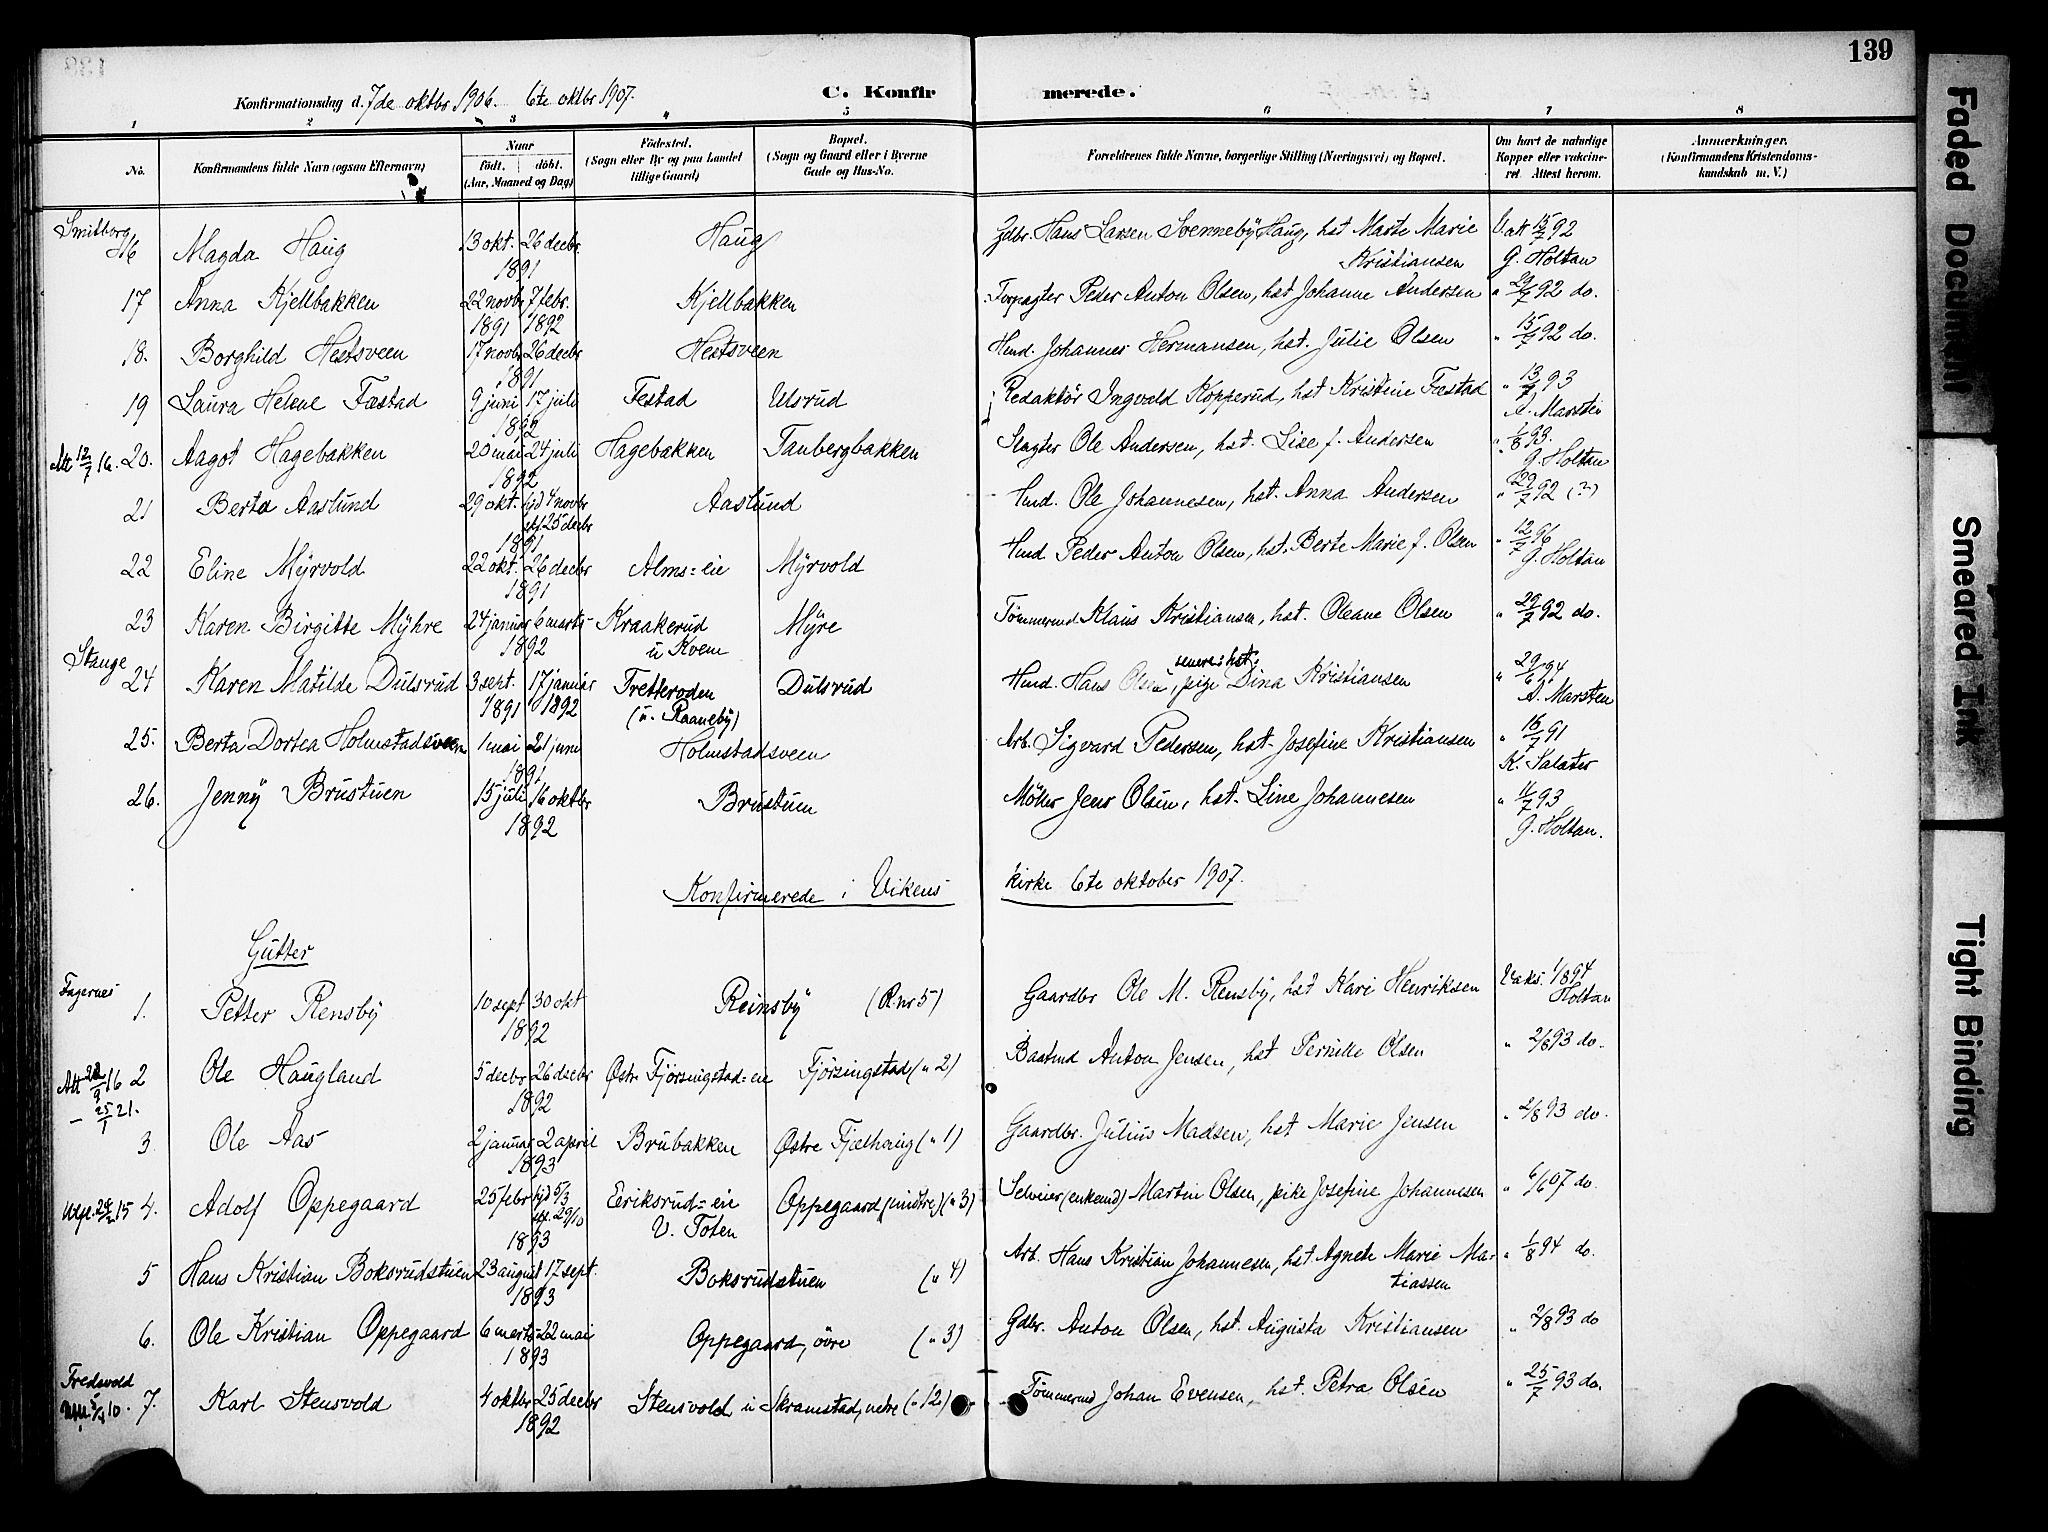 139
Konfirmationsdag d. 7de oktbr 1906. 6te oktbr 1907.
C. Konfirmerede.
1 2 3 4 5 6 7 8
No.
Konfirmandens fulde Navn (ogsaa Efternavn)
Naar
født. døbt.
(Aar, Maaned og Dag)
Fødested.
(Sogn eller By og paa Landet
tillige Gaard)
Bopæl.
(Sogn og Gaard eller i Byerne
Gade og Hus-No.
Forældrenes fulde Navne, borgerlige Stilling (Næringsvei) og Bopæl.
Om havt de naturlige
Kopper eller vaccine-
ret. Attest herom.
Anmærkninger.
(Konfirmandens Kristendoms-
kundskab m. V.)
Smitborg
16 Magda Haug 13 okt. 26 decbr. Haug Gdbr. Hans Larsen Svenneby Haug, hst Marte Marie Vak 15/7 92
1891 Kristiansen G. Holtan
17 Anna Kjellbakken 22 novb 7 febr. Kjellbakken Forpagter Peder Anton Olsen, hst Johanne Andersen " 29/7 92 do.
1891 1892
18. Borghild Hestsveen 17 novb 26 decbr Hestsveen Hmd. Johannes Hermansen, hst. Julie Olsen " 15/7 92 do.
1891
19 Laura Helene Fæstad 9 juni 17 juli Festad Ulsrud Redaktør Ingvald Kopperud, hst Kristine Fæstad " 13/7 93
1892 A. Marsten
Att 12/7 16. 20. Aagot Hagebakken 20 mai 24 juli Hagebakken Taubergbakken Slagter Ole Andersen, hst. Lise f. Andersen " 1/8 93.
1892 G. Holtan
21 Berta Aaslund 29 okt. hjd 4 novbr Aaslund Hmd. Ole Johannesen, hst. Anna Andersen " 29/7 92 (?)
25 decbr
1891
22 Eline Myrvold 22 okt. 26 decbr Alms=eie Myrvold Hmd Peder Anton Olsen, hst. Berte Marie f. Olsen " 12/7 96
1891 G. Holtan
23 Karen Birgitte Myhre 24 januar 6 marts Kraakerud Myre Tømmermd. Klaus Kristiansen, hst. Oleane Olsen " 29/7 92 do.
1892 u Kvem
Stange
24 Karen Matilde Dulsrud 3 sept. 17 januar Tretteroden Dulsrud Hmd. Hans Olsen, pige senere: hst: Dina Kristiansen " 29/6 94
1891 1892 (u. Raaneby) A. Marsten
25. Berta Dortea Holmstadsveen 1 mai 21 juni Holmstadsveen Arb. Sigvard Pedersen, hst. Josefine Kristiansen " 16/7 91
1891 K. Salater
26. Jenny Brustuen 15 juli 16 oktbr Brustuen Møller Jens Olsen, hst. Line Johannesen " 11/7 93
1892 G. Holtan.
Konfirmerede i Vikens kirke 6te oktober 1907.
Gutter
Fagernes
1. Petter Rensby 10 sept 30 okt Reinsby (R. nr 5) Gaardbr Ole M. Rensby, hst Kari Henriksen Vaks. 1/8 94
1892 Holtan
Att 22/9 16 2 Ole Haugland 5 decbr 26 decbr Østr. Fjørsingstad=eie Fjørsingstad (" 2) Baatmd Anton Jensen, hst Pernille Olsen " 2/8 93 do.
– 25/1 21. 1892
3. Ole Aas 2 januar 2 april Brubakken Østre Fjælhaug (" 1) Gaardbr. Julius Madsen, hst Marie Jensen " 2/8 93 do.
1893
Utfl. 24/2 15 4. Adolf Oppegaard 25 febr hjd 5/3 Eeriksrud=eie Oppegaard (mindre) (" 3) Selveier (enkemd) Martin Olsen, pike Josefine Johannesen " 6/6 07 do.
29/10 V. Toten
1893
5 Hans Kristian Boksrudstuen 23 august 17 sept. Boksrudstuen (" 4) Arb. Hans Kristian Johannesen, hst. Agnete Marie Ma- " 1/8 94 do.
1893 tiassen
6. Ole Kristian Oppegaard 6 marts 22 mai Oppegaard, øvre (" 3) Gdbr. Anton Olsen, hst. Augusta Kristiansen " 2/8 93 do
1893
Fredsvold
10. 7. Karl Stensvold 4 oktbr 25 decbr Stensvold u Skramstad, nedre (" 12) Tømmermd Johan Evensen, hst. Petra Olsen " 25/7 93 do.
1892
Faded Document
Smeared Ink
Tight Binding